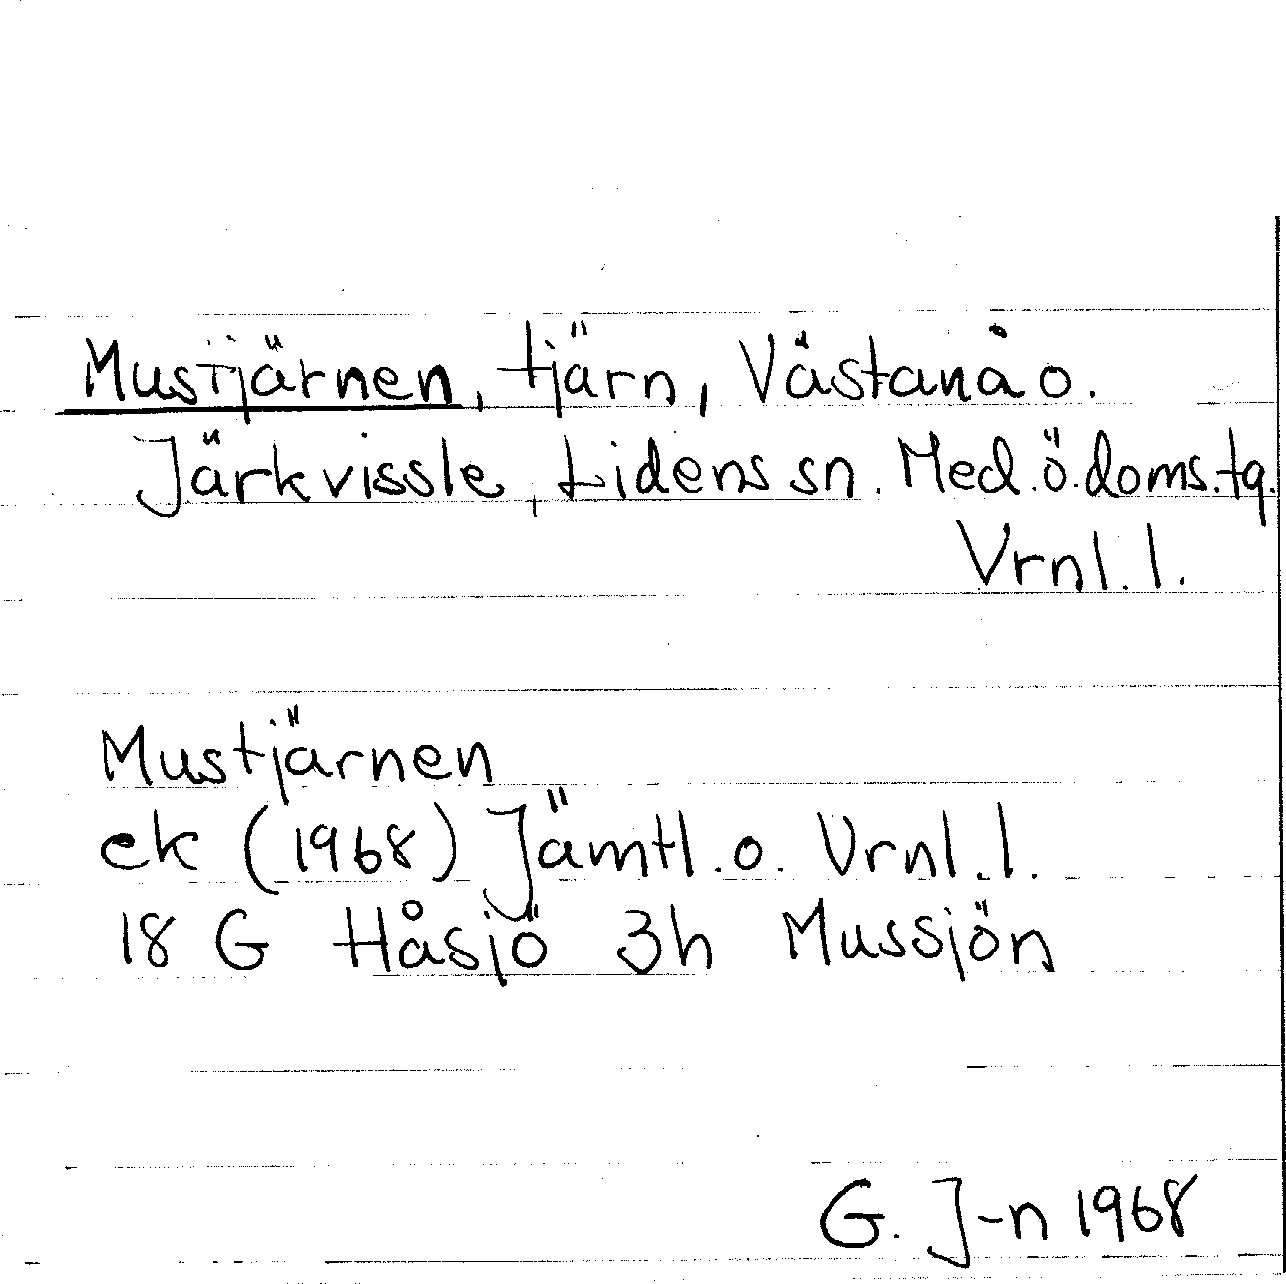 Mustjärnen, tjärn, Västanå o.
Järkvissle, Lidens sn. Med.ö.doms.tg.
Vrnl.l.
Mustjärnen
ek (1968) Jämtl.o. Vrnl.l.
18 G Håsjö 3h Mussjön
G. J-n 1968